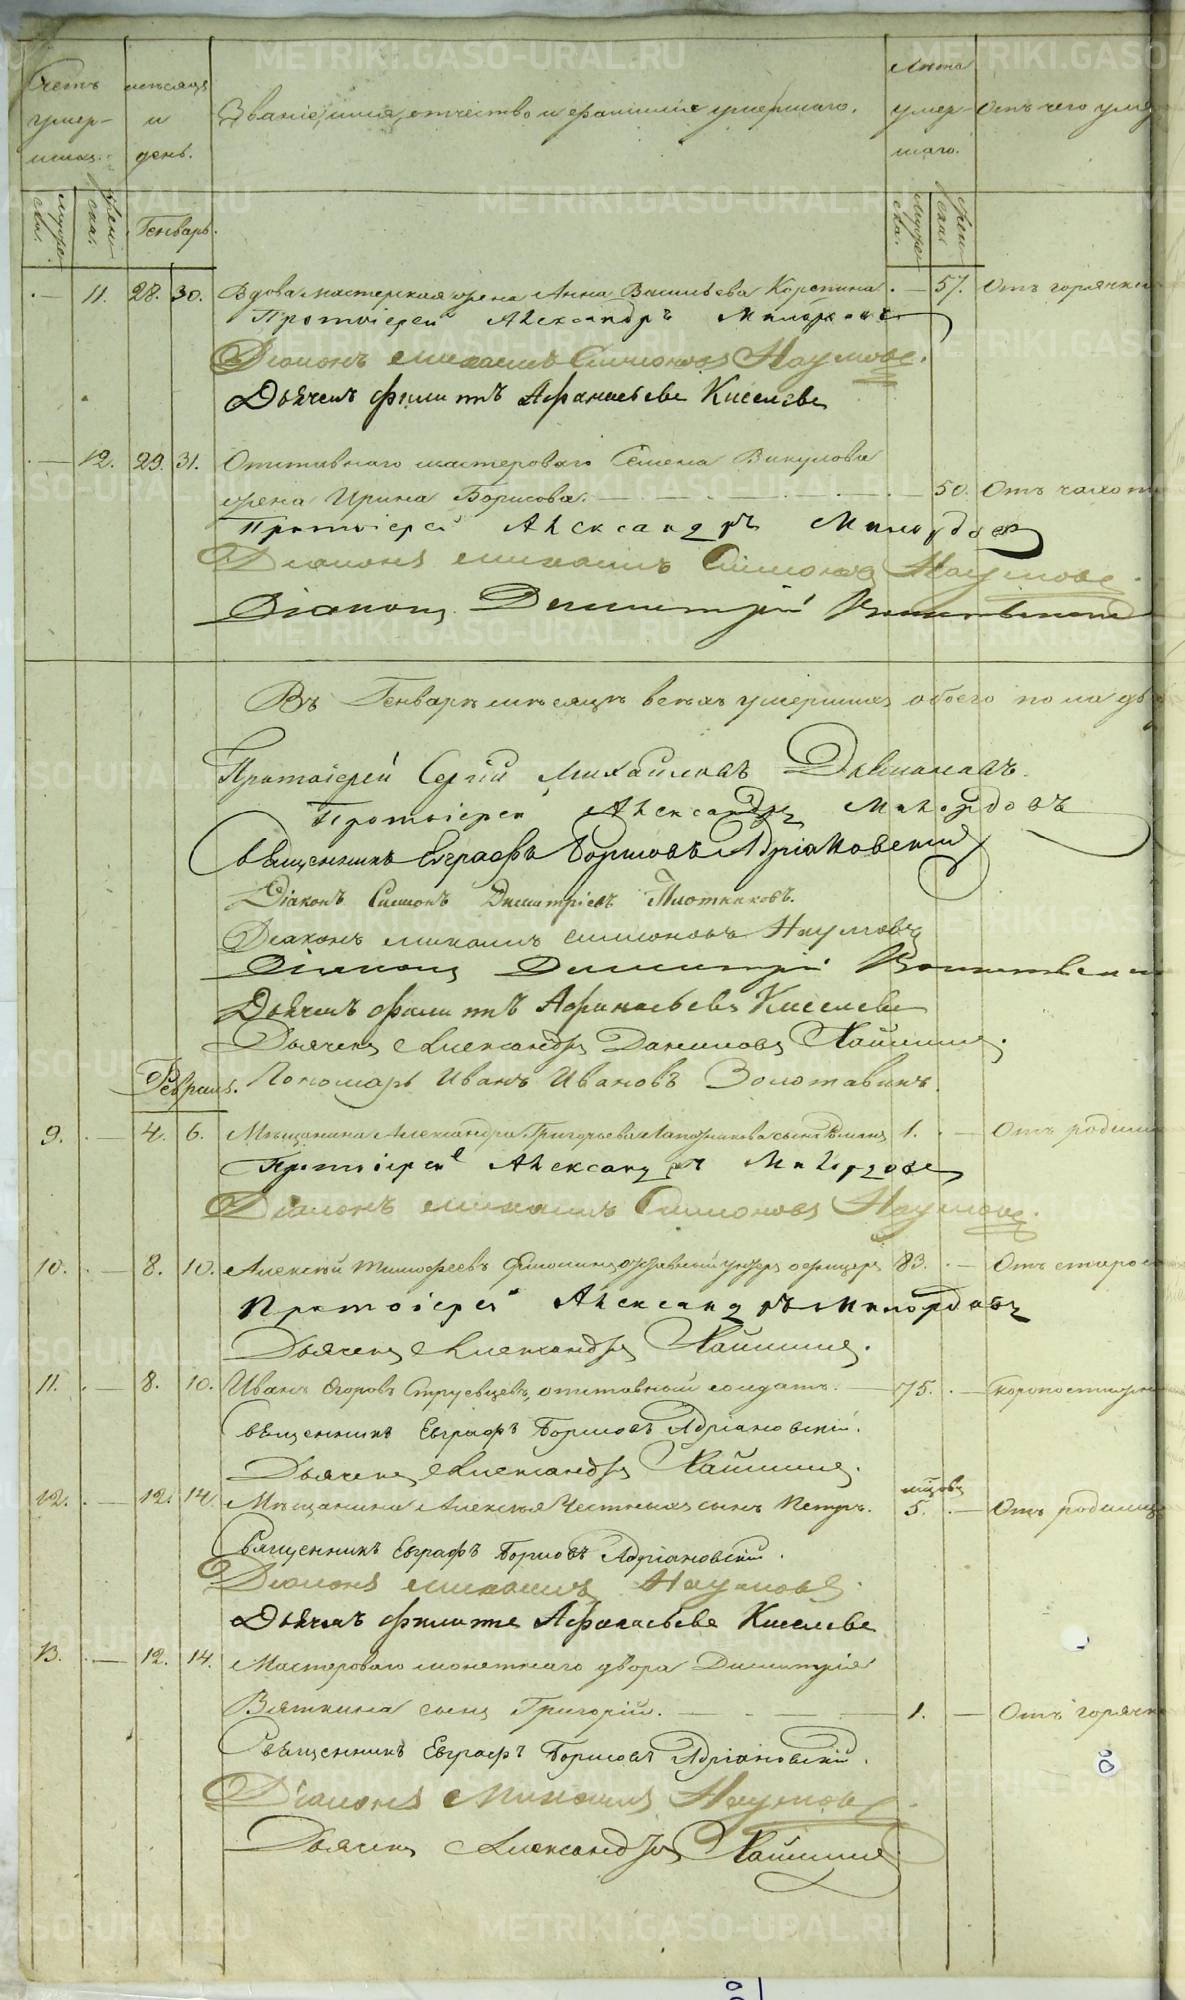 Счетъ умер-шихъ.
мѣсяцъ и день.
Званіе, имя, отчество и фамилія умершаго.
Лѣта умер-шаго.
Отъ чего умер
муже-ска.
жен-ска.
Генварь.
муже-ска.
жен-ска
11. 28. 30. Вдова мастерская жена Анна Васильева Корепина. 57. Отъ горячки
Протоіерей Александръ Милордовъ
Діаконъ Михаилъ Симоновъ Наумовъ.
Дьячекъ Филиппъ Афанасьевъ Киселевъ
12. 29. 31. Отставнаго мастероваго Семена Викулова
жена Ирина Борисова. 50. Отъ чахот
Протоіерей Александръ Милордовъ
Діаконъ Михаилъ Симоновъ Наумовъ.
Діаконъ Димитрій
Въ Генварѣ мѣсяцѣ всѣхъ умершихъ обоего пола дв
Протоіерей Сергій Михайловъ
Протоіерей Александръ Милордовъ
Священникъ Евграфъ Борисовъ Адріановскій
Діаконъ Симонъ Димитріевъ Плотниковъ.
Діаконъ Михаилъ Симоновъ Наумовъ
Діаконъ Димитрій
Дьячекъ Филиппъ Афанасьевъ Киселевъ
Дьячекъ Александръ Даниловъ
Февраль. Пономарь Иванъ Ивановъ Золотавинъ.
9. 4. 6. Мѣщанина Александра Григорьева сынъ 1. Отъ родим
Протоіерей Александръ Милордовъ
Діаконъ Михаилъ Симоновъ Наумовъ.
10. 8. 10. Алексѣй Тимофеевъ унтеръ офицеръ 83. Отъ старос
Протоіерей Александръ Милордовъ
Дьячекъ Александръ
11. 8. 10. Иванъ Егоровъ Струевцевъ, отставный солдатъ. 75. Скоропостижн
Священникъ Евграфъ Борисовъ Адріановскій.
Дьячекъ Александръ
мѣсяцовъ
12. 12. 14. Мѣщанина Алексѣя Честныхъ сынъ Петръ. 5. Отъ родимц
Священникъ Евграфъ Борисовъ Адріановскій.
Діаконъ Михаилъ Наумовъ.
Дьячекъ Филиппъ Афанасьевъ Киселевъ
13. 12. 14. Мастероваго монетнаго двора Димитрія
Вяткина сынъ Григорій. 1. Отъ горячк
Священникъ Евграфъ Борисовъ Адріановскій.
Діаконъ Михаилъ Наумовъ.
Дьячекъ Александръ
METRIKI.GASO-URAL.RU